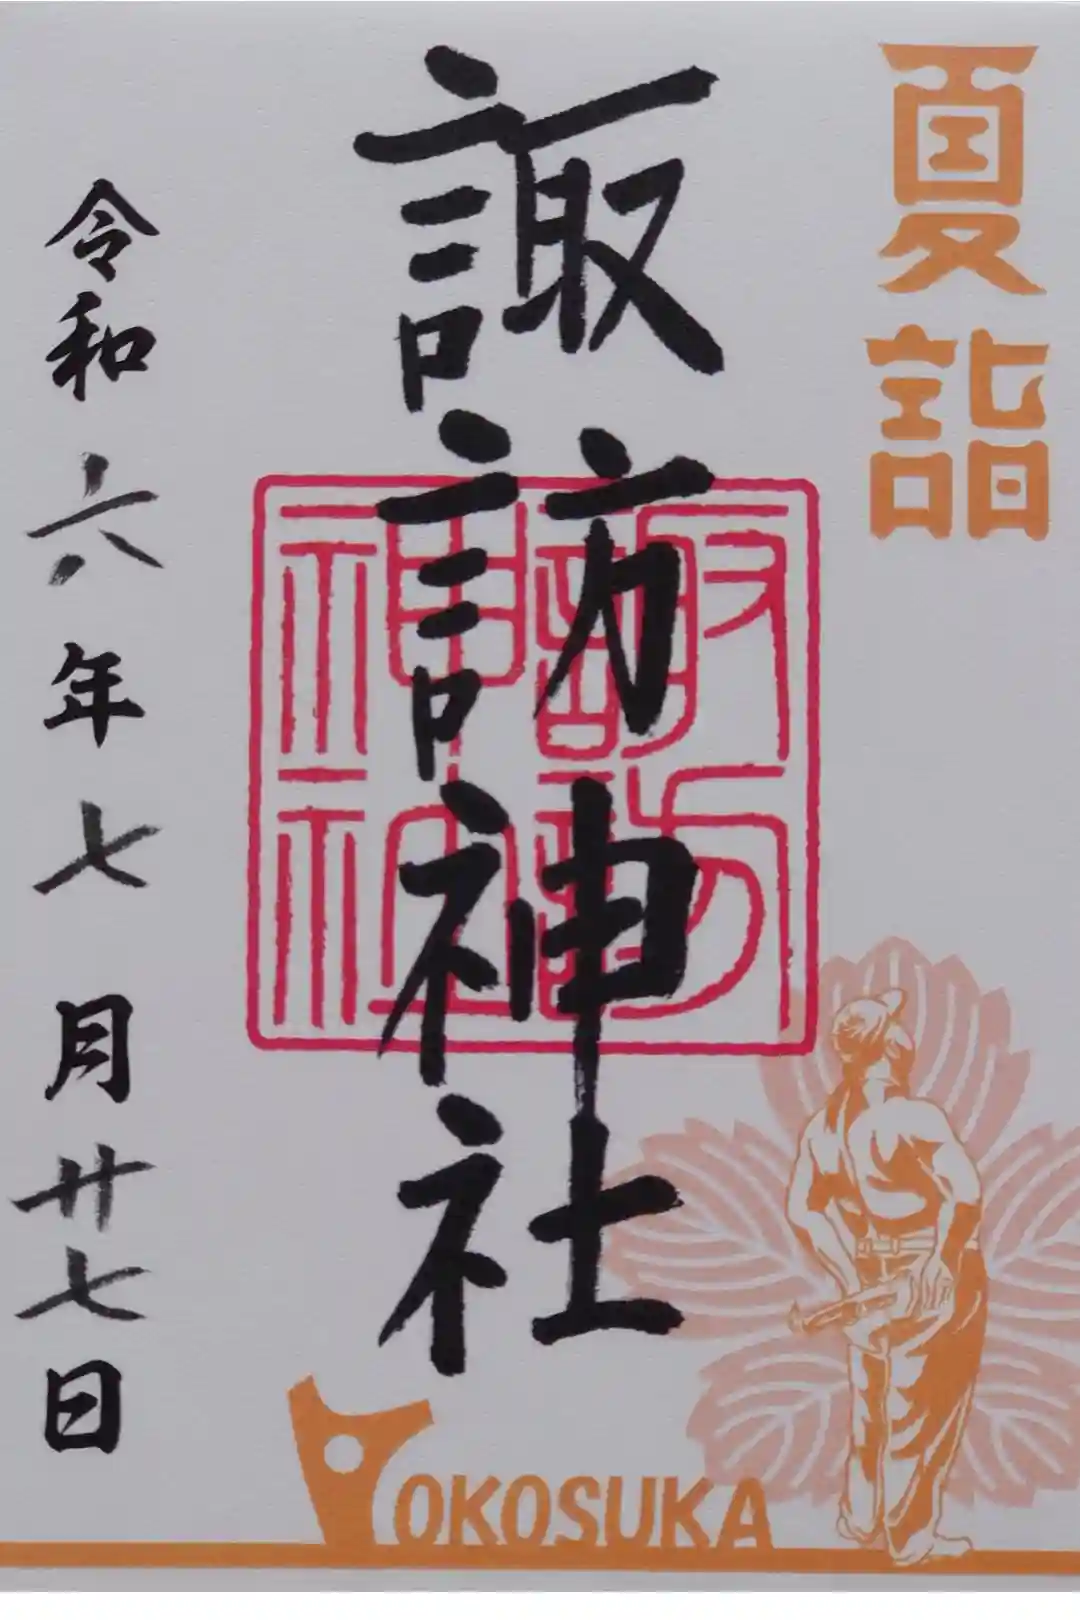 夏詣
諏訪神社
諏訪神社
令和六年七月廿七日
YOKOSUKA